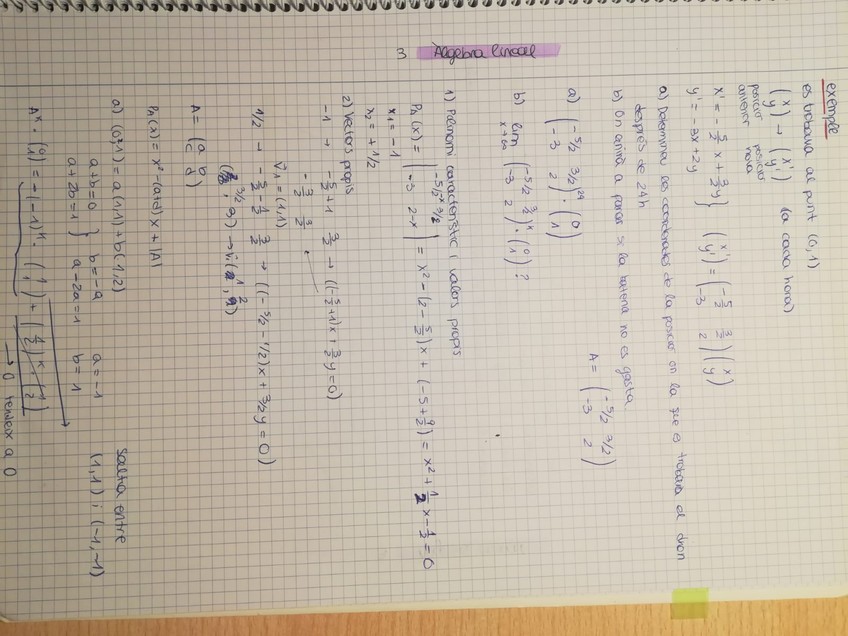 3 Àlgebra lineal
exemple
es trobava al punt (0,1)
(x y) → (x' y') (a cada hora)
posició anterior posició nova
x' = -5/2 x + 3/2 y } (x' y') = (-5/2 3/2 -3 2)(x y)
y' = -3x + 2y
a) Determineu les coordenades de la posició en la que es trobava el dron
després de 24h
b) On anirà a parar si la bateria no es gasta.
a) (-5/2 3/2 -3 2)^24 · (0 1) A = (-5/2 3/2 -3 2)
b) lim x→∞ (-5/2 3/2 -3 2)^x · (0 1) ?
1) Polinomi característic i valors propis
PA(x) = |-5/2-x 3/2 -3 2-x| = x² - (2 - 5/2)x + (-5 + 9/2) = x² + 1/2 x - 1/2 = 0
x1 = -1
x2 = +1/2
2) Vectors propis
-1 → -5/2+1 3/2 → ((-5/2+1)x + 3/2 y = 0)
-3/2 3/2
v1 = (1,1)
1/2 → -5/2-1/2 3/2 → ((-5/2-1/2)x + 3/2 y = 0)
A = (a b c d)
PA(x) = x² - (a+d)x + |A|
a) (0,1) = a(1,1) + b(1,2)
a+b=0 } b=-a a=-1
a+2b=1 a-2a=1 b=1
Salta entre
(1,1) i (-1,-1)
A^x · (0 1) = -(-1)^x · (1 1) + (1/2)^x · (1 2)
→ 0 tendeix a 0